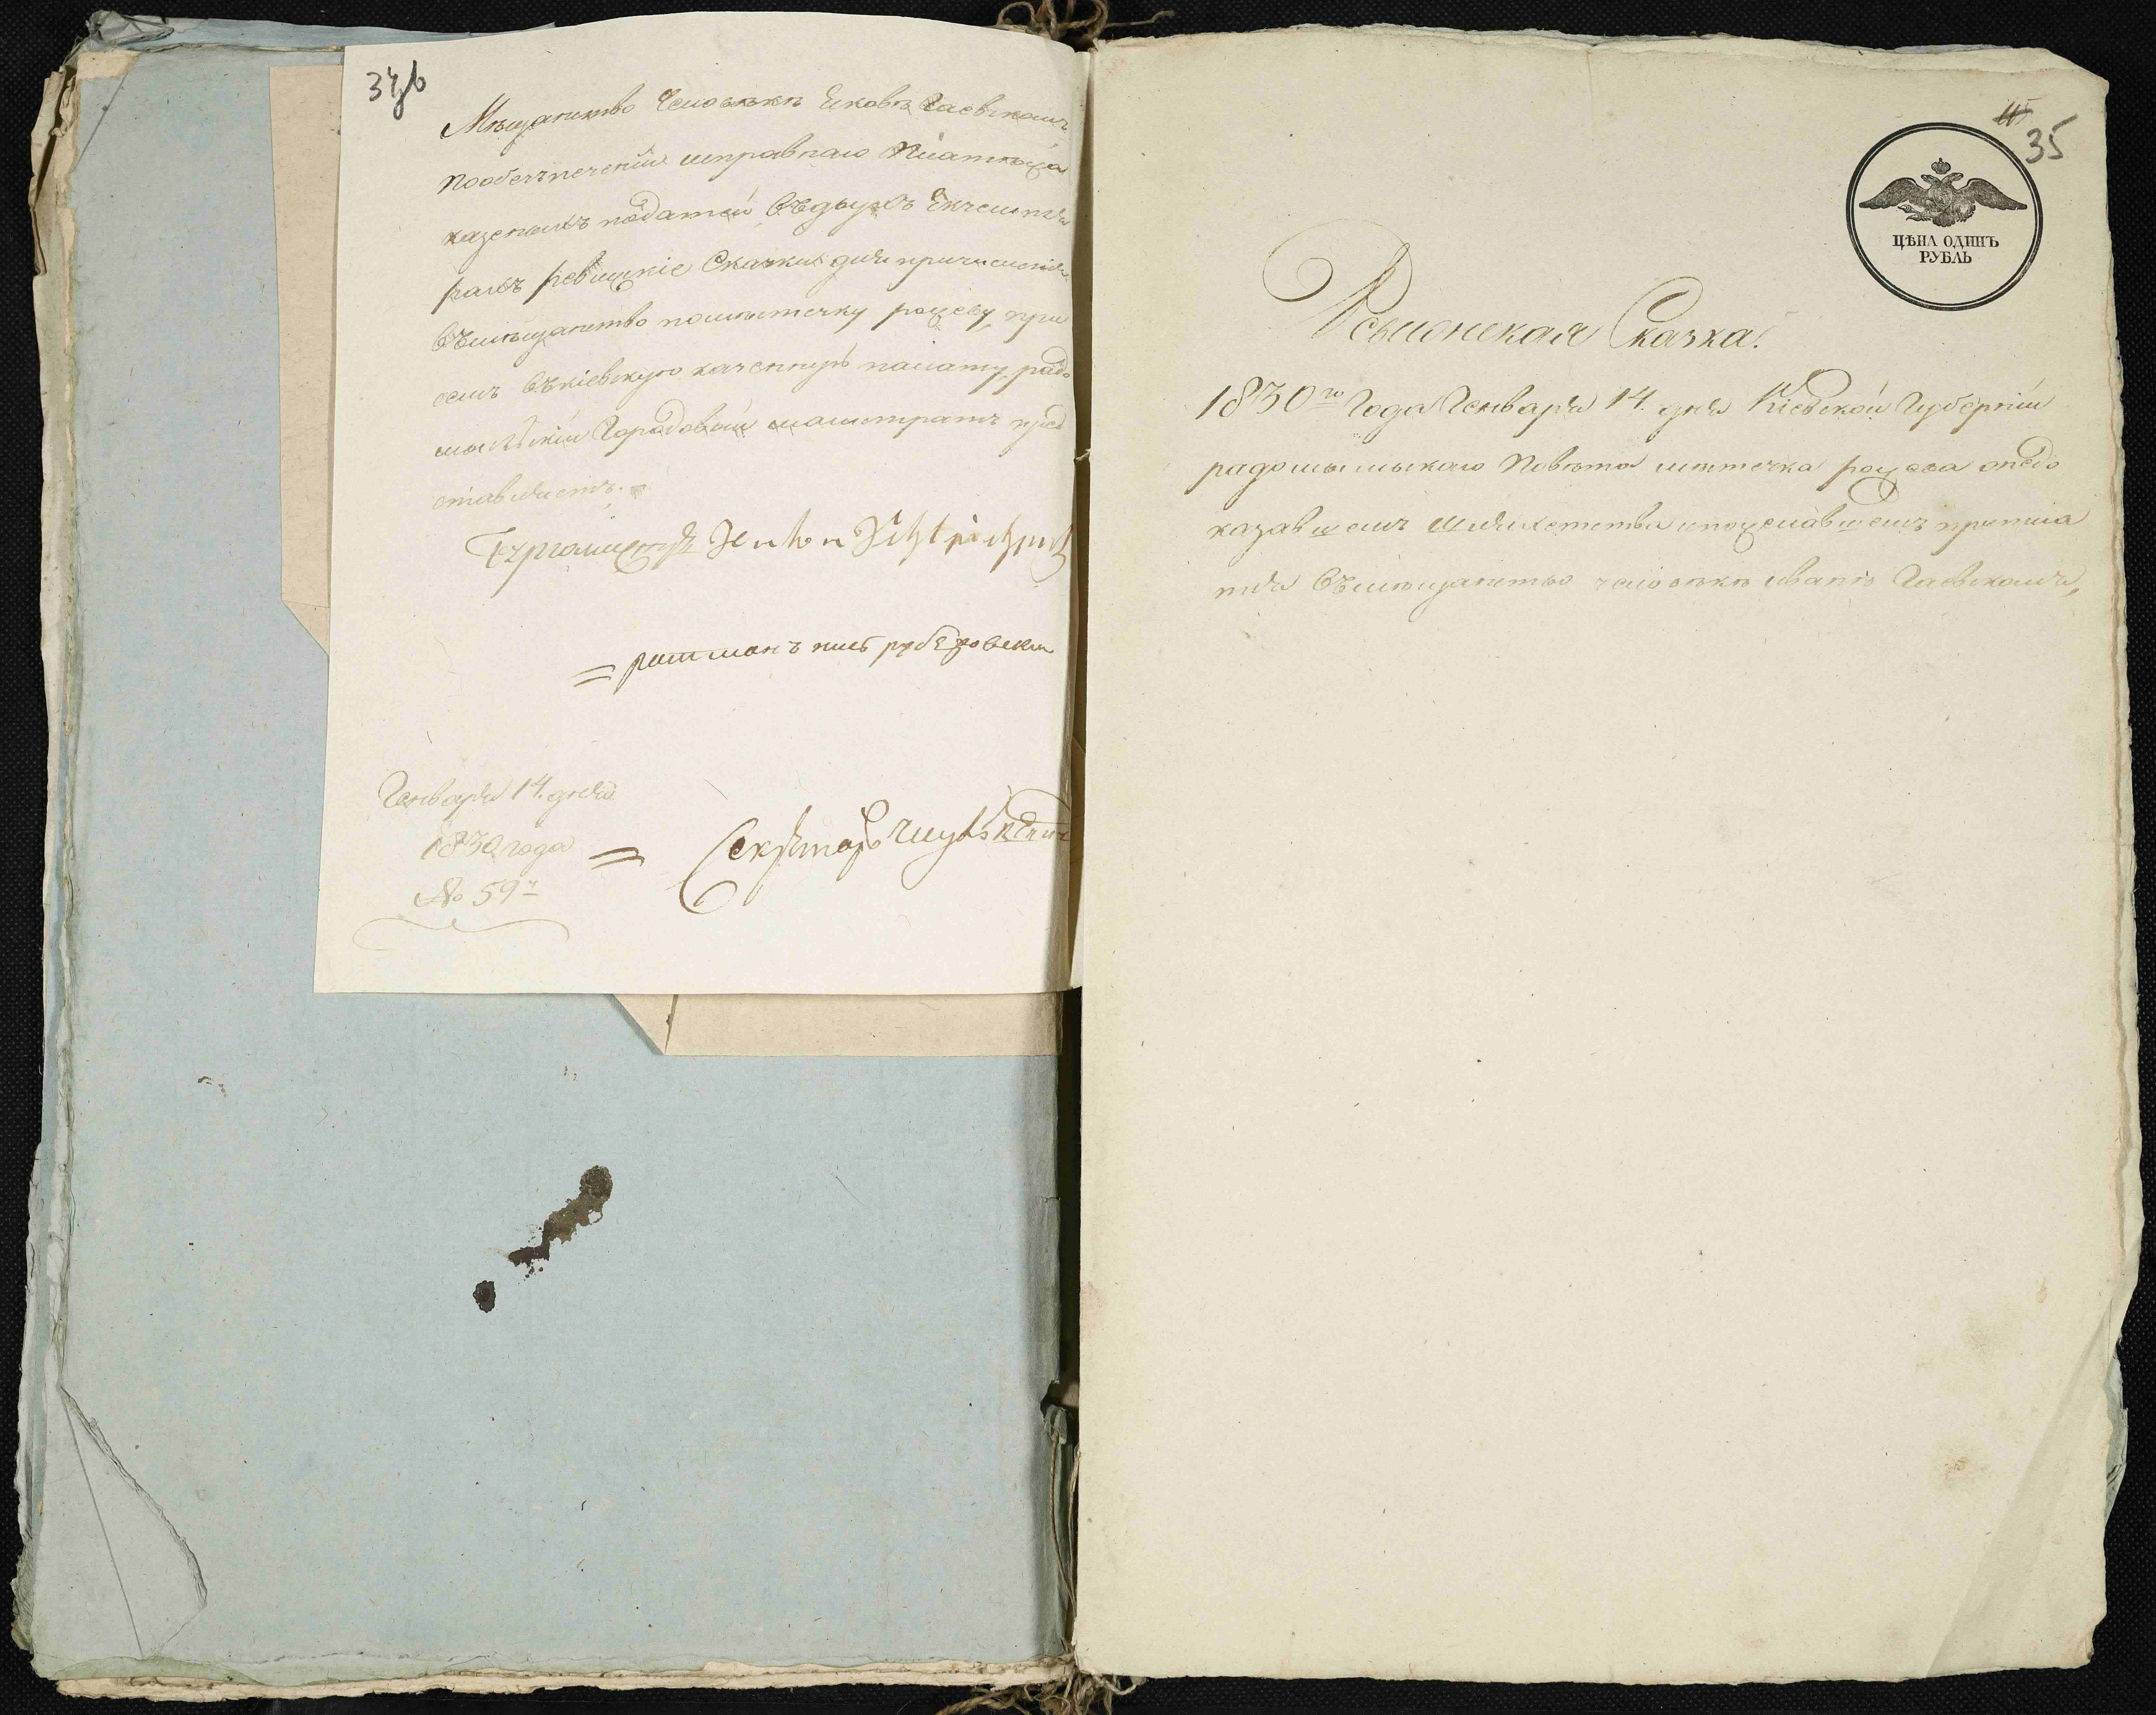 34зв
Мѣщанство Человѣкѣ Яковѣ Гаевскомъ
пообезпеченіи исправнаго платежа
казеныхъ податей Въдвухъ Екземпля
рахъ ревизскіе Сказки для причисленія
Въмѣщанство помѣстечку рожеву, при
семъ Въкіевскую казенную палату радо
мысльскій Городовый магистратъ пред
ставляетъ.
Бургомистръ
ратманъ
Генваря 14. дня
1830 года
№ 59й
Секретарь
35
ЦѢНА ОДИНЪ
РУБЛЬ
Ревизская Сказка.
1830го Года Генваря 14. дня Кіевской Губерніи
радомысльскаго Повѣта мѣстечка рожева онедо
казавшемъ Шляхетства ипожелавшемъ приписа
тся Въмѣщанство человѣкѣ иванѣ Гаевскомъ,